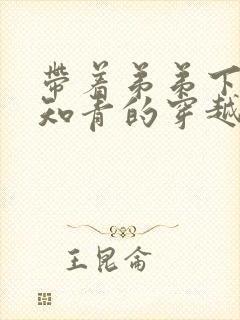 带着弟弟下
知青的穿越
王昆侖